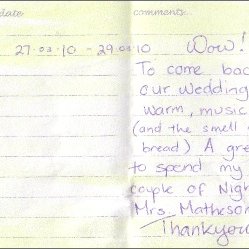 date comments
27.03.10 - 29.03.10 Wow!
To come bac
our wedding
warm, music
(and the smell
bread) A gre
to spend my
couple of Nigh
Mrs. Matheson
Thankyou